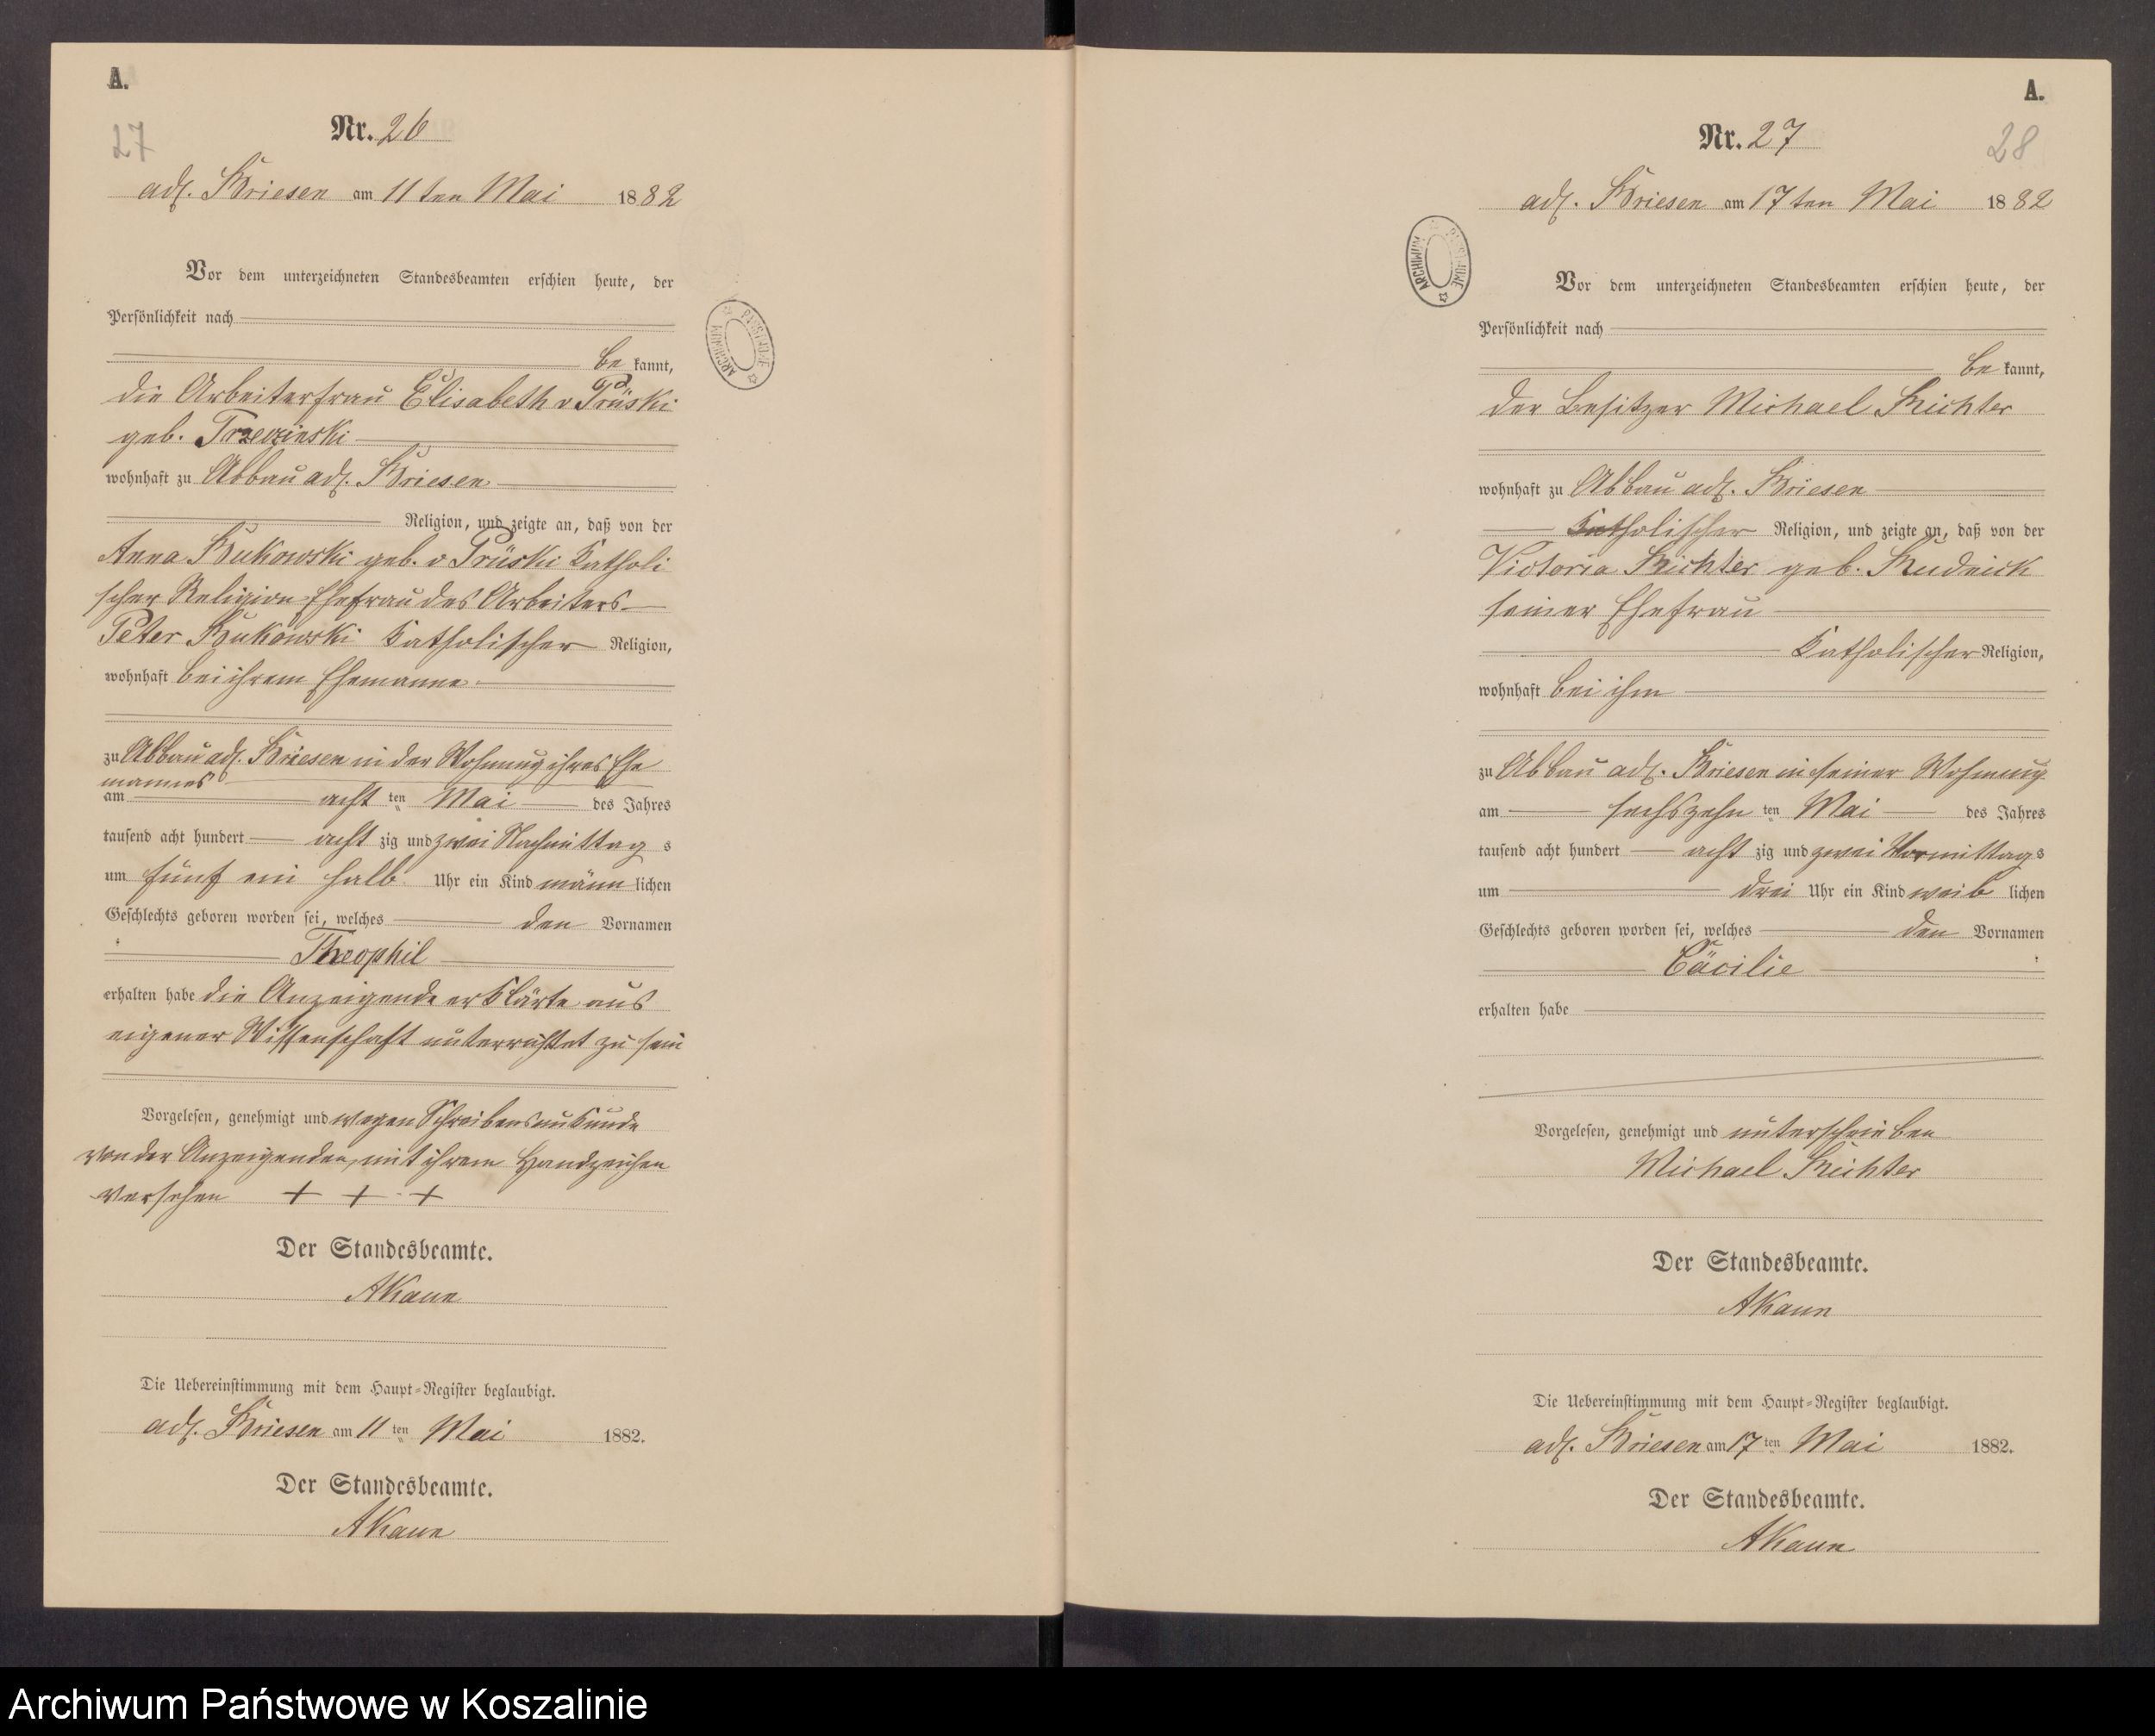 A.
27
Nr. 26
adl. Briesen am 11ten Mai 1882
Vor dem unterzeichneten Standesbeamten erschien heute, der
Persönlichkeit nach
be kannt,
die Arbeiterfrau Elisabeth v Prüski
geb. Trzewinski
wohnhaft zu Abbau adl. Briesen
Religion, und zeigte an, daß von der
Anna Bukowski geb. v Prüski Katholi
scher Religion Ehefrau des Arbeiters
Peter Bukowski Katholischer Religion,
wohnhaft bei ihrem Ehemanne
zu Abbau adl. Briesen in der Wohnung ihres Ehe
mannes
am acht ten Mai des Jahres
tausend acht hundert acht zig und zwei Nachmittag s
um fünf ein halb Uhr ein Kind männ lichen
Geschlechts geboren worden sei, welches den Vornamen
Theophil
erhalten habe die Anzeigende erklärte aus
eigener Wissenschaft unterrichtet zu sein
Vorgelesen, genehmigt und wegen Schreibensunkunde
von der Anzeigenden, mit ihrem Handzeichen
versehen + + +
Der Standesbeamte.
AKaun
Die Uebereinstimmung mit dem Haupt-Register beglaubigt.
adl. Briesen am 11 ten Mai 1882.
Der Standesbeamte.
AKaun
ARCHIWUM PAŃSTWOWE
A.
28
Nr. 27
adl. Briesen am 17ten Mai 1882
Vor dem unterzeichneten Standesbeamten erschien heute, der
Persönlichkeit nach
be kannt,
der Besitzer Michael Richter
wohnhaft zu Abbau adl. Briesen
Katholischer Religion, und zeigte an, daß von der
Victoria Richter geb. Rudnick
seiner Ehefrau
Katholischer Religion,
wohnhaft bei ihm
zu Abbau adl. Briesen in seiner Wohnung
am sechszehn ten Mai des Jahres
tausend acht hundert acht zig und zwei Vormittags
um drei Uhr ein Kind weib lichen
Geschlechts geboren worden sei, welches den Vornamen
Cäcilie
erhalten habe
Vorgelesen, genehmigt und unterschrieben
Michael Richter
Der Standesbeamte.
AKaun
Die Uebereinstimmung mit dem Haupt-Register beglaubigt.
adl. Briesen am 17 ten Mai 1882.
Der Standesbeamte.
AKaun
ARCHIWUM PAŃSTWOWE
Archiwum Państwowe w Koszalinie